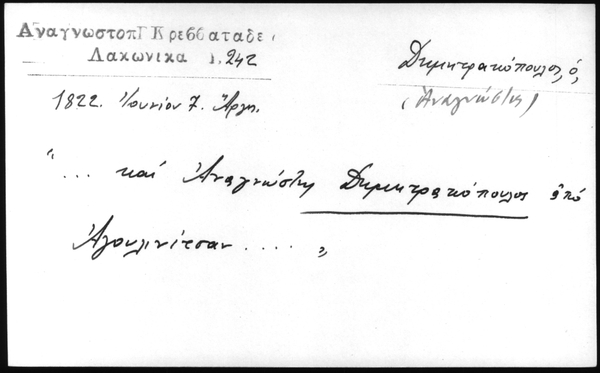 Ἀναγνωστοπ Γ Κρεββαταδε
Λακωνικα 242
Δημητρακόπουλος, ὁ,
(Ἀναγνώστης)
1822. Ἰουνίου 7. Ἄργος.
"... καί Ἀναγνώστης Δημητρακόπουλος ἀπό
Ἀγουλινίτσαν .... „